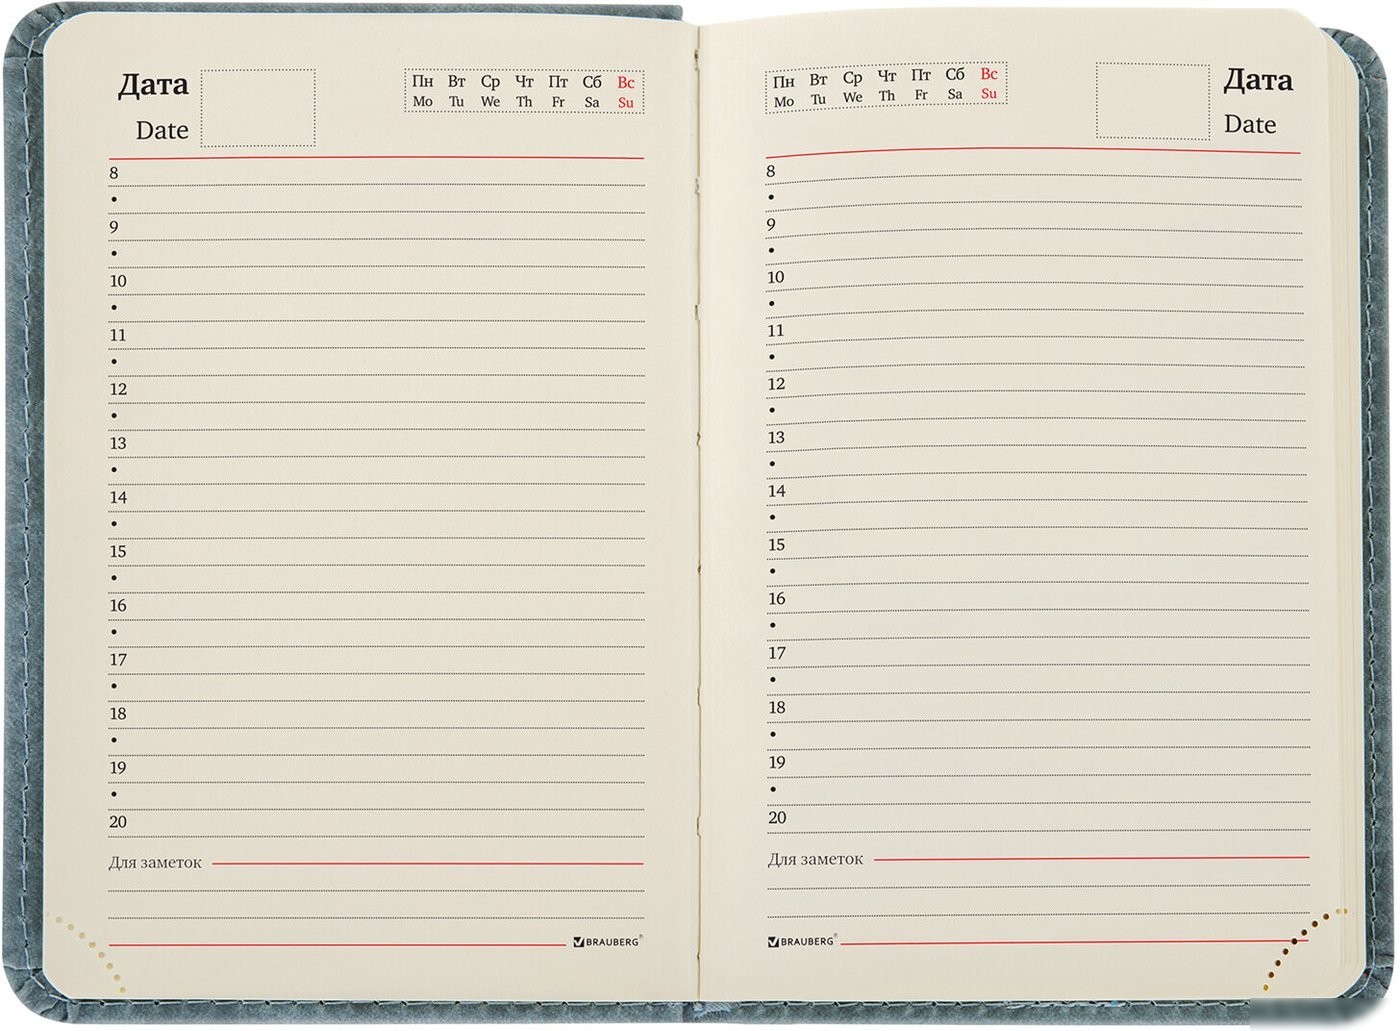 Дата
Date
Пн Вт Ср Чт Пт Сб Вс
Mo Tu We Th Fr Sa Su
8
•
9
•
10
•
11
•
12
•
13
•
14
•
15
•
16
•
17
•
18
•
19
•
20
Для заметок
BRAUBERG®
Пн Вт Ср Чт Пт Сб Вс
Mo Tu We Th Fr Sa Su
Дата
Date
8
•
9
•
10
•
11
•
12
•
13
•
14
•
15
•
16
•
17
•
18
•
19
•
20
Для заметок
BRAUBERG®